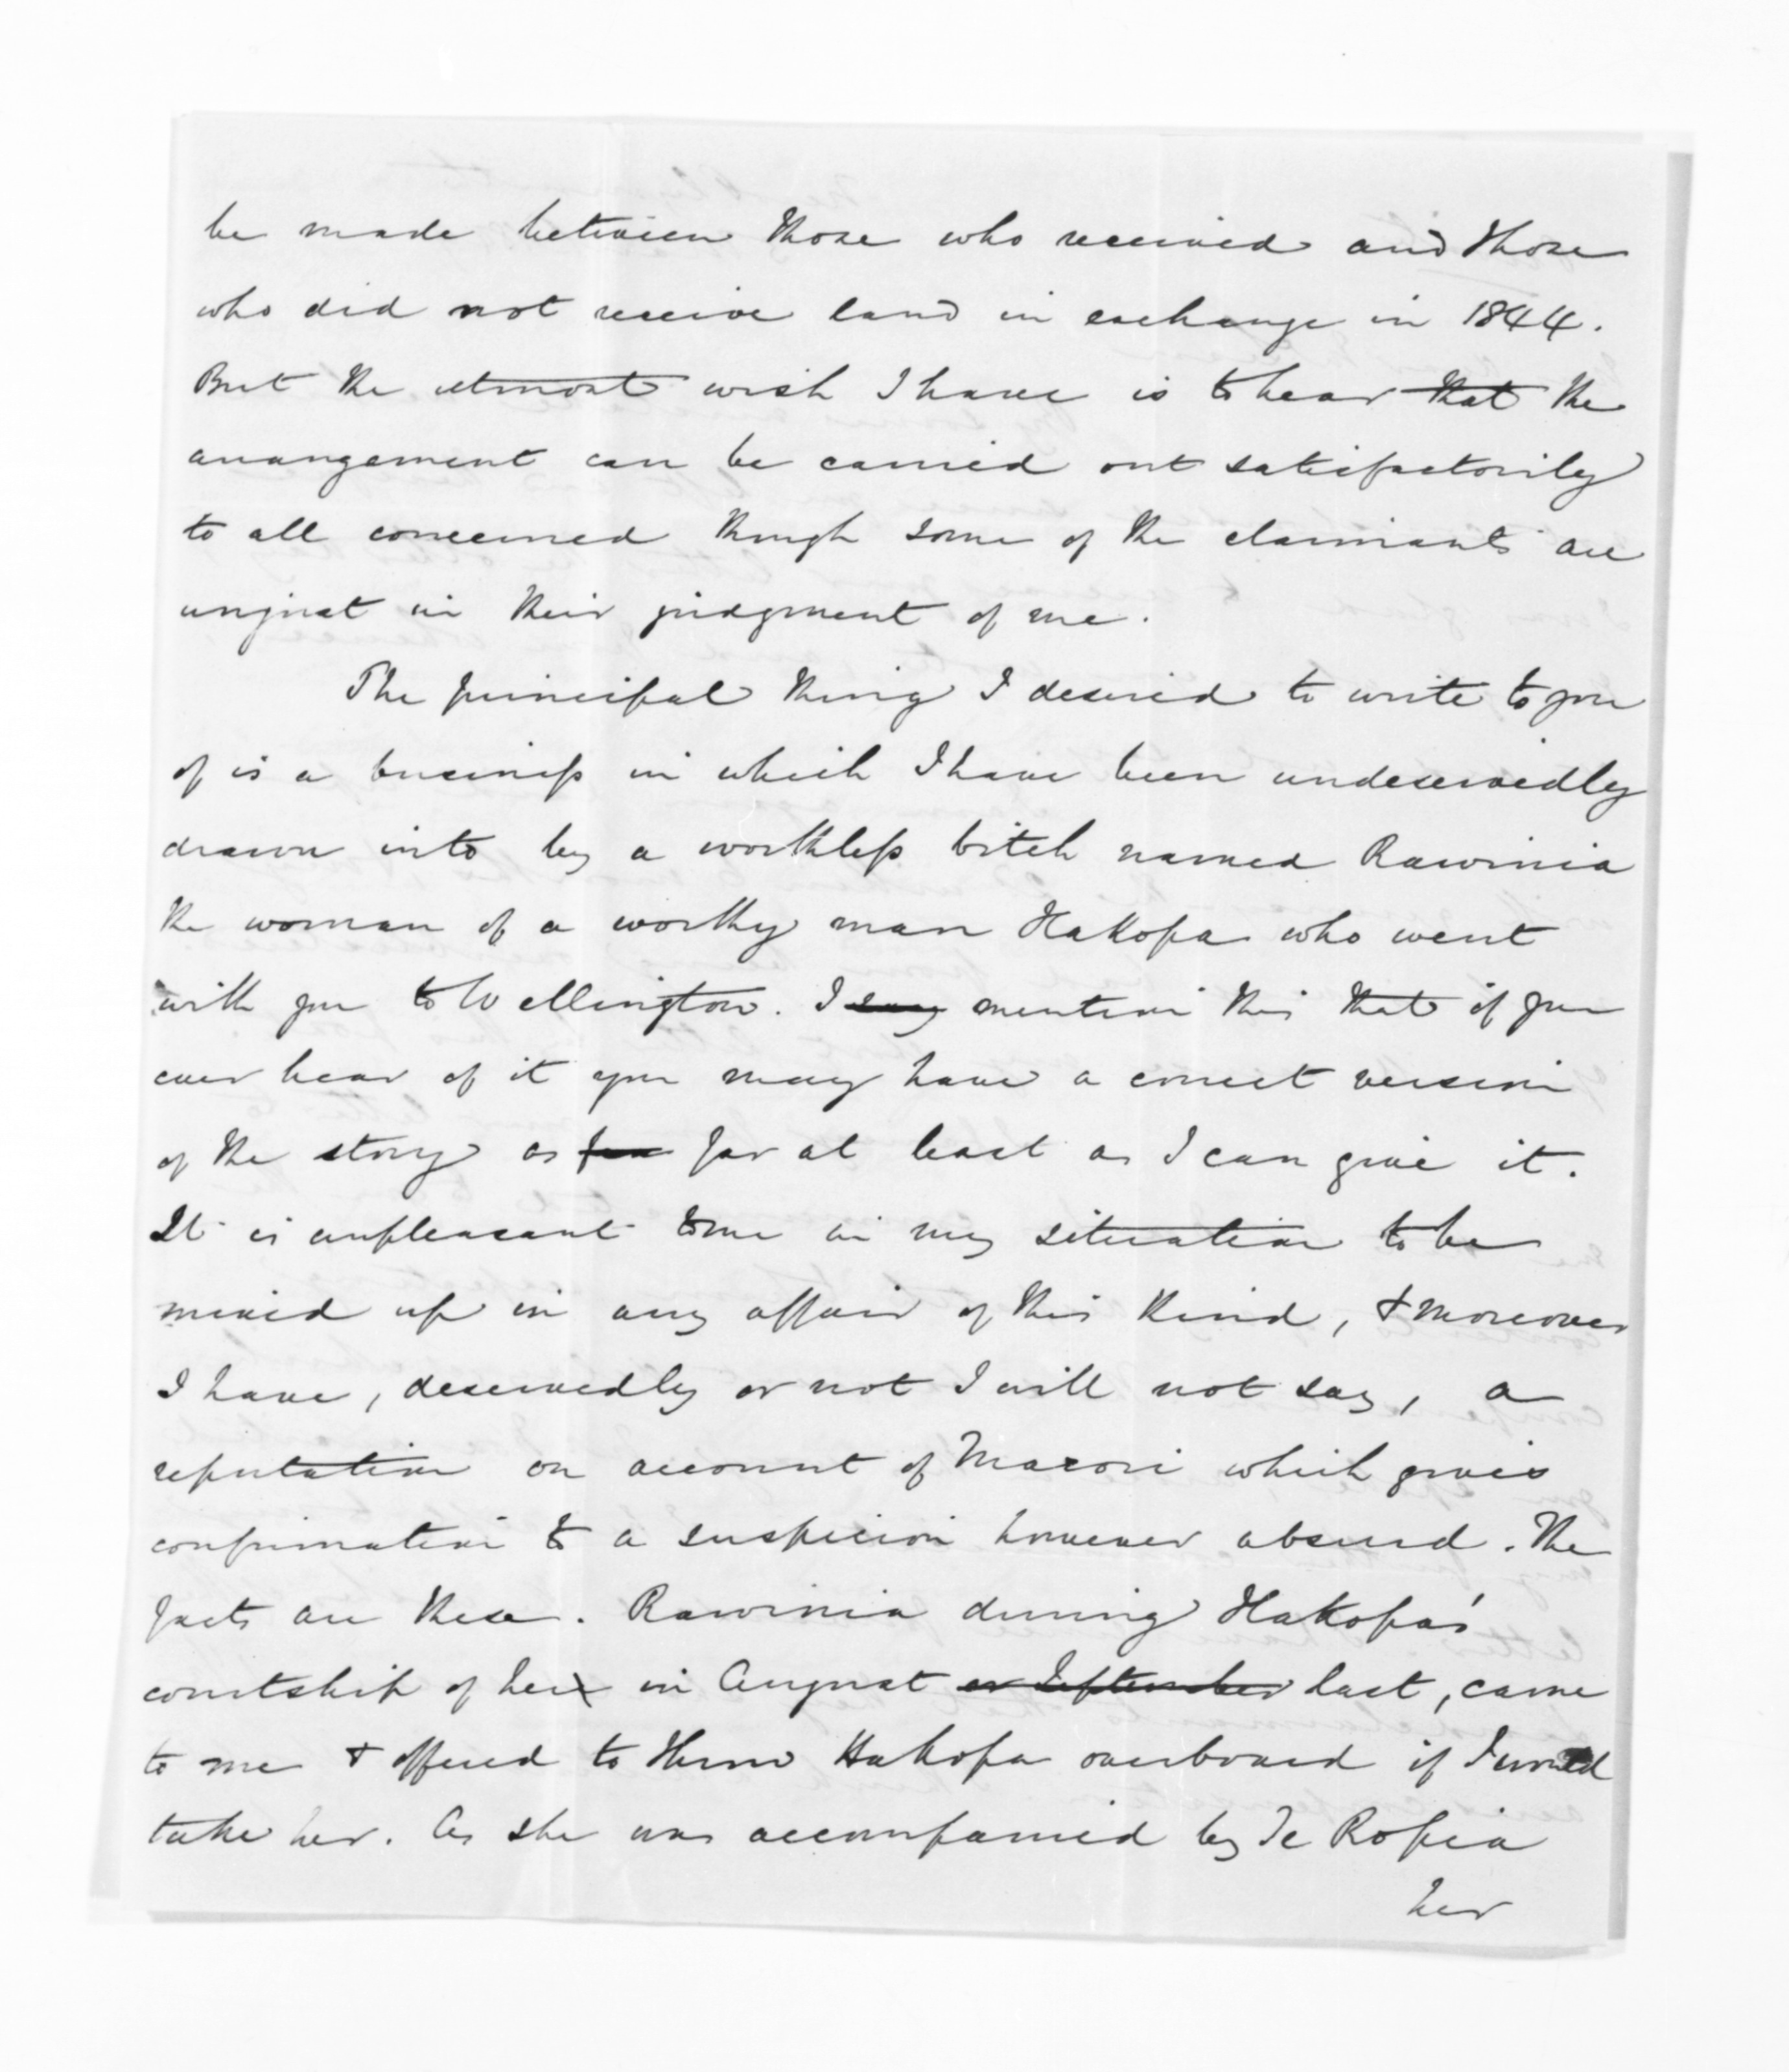 be made between those who received and those
who did not receive land in exchange in 1844.
But the utmost wish I have is to hear that the
arrangement can be carried out satisfactorily
to all concerned though some of the claimants are
unjust in their judgment of me.
The principal thing I desired to write to you
of is a business in which I have been undeservedly
drawn into by a worthless bitch named Rawinia
the woman of a worthy man Hakopa who went
with you to Wellington. I say mention this that if you
ever hear of it you may have a correct version
of the story as far at least as I can give it.
It is unpleasant to me in my situation to be
mixed up in any affair of this kind, & moreover
I have, deservedly or not I will not say, a
reputation on account of Maori which gives
confirmation to a suspicion however absurd. The
facts are these. Rawinia during Hakopa's
courtship of her in August or September last, came
to me & offered to throw Hakopa overboard if I would
take her. As she was accompanied by Te Ropia
her